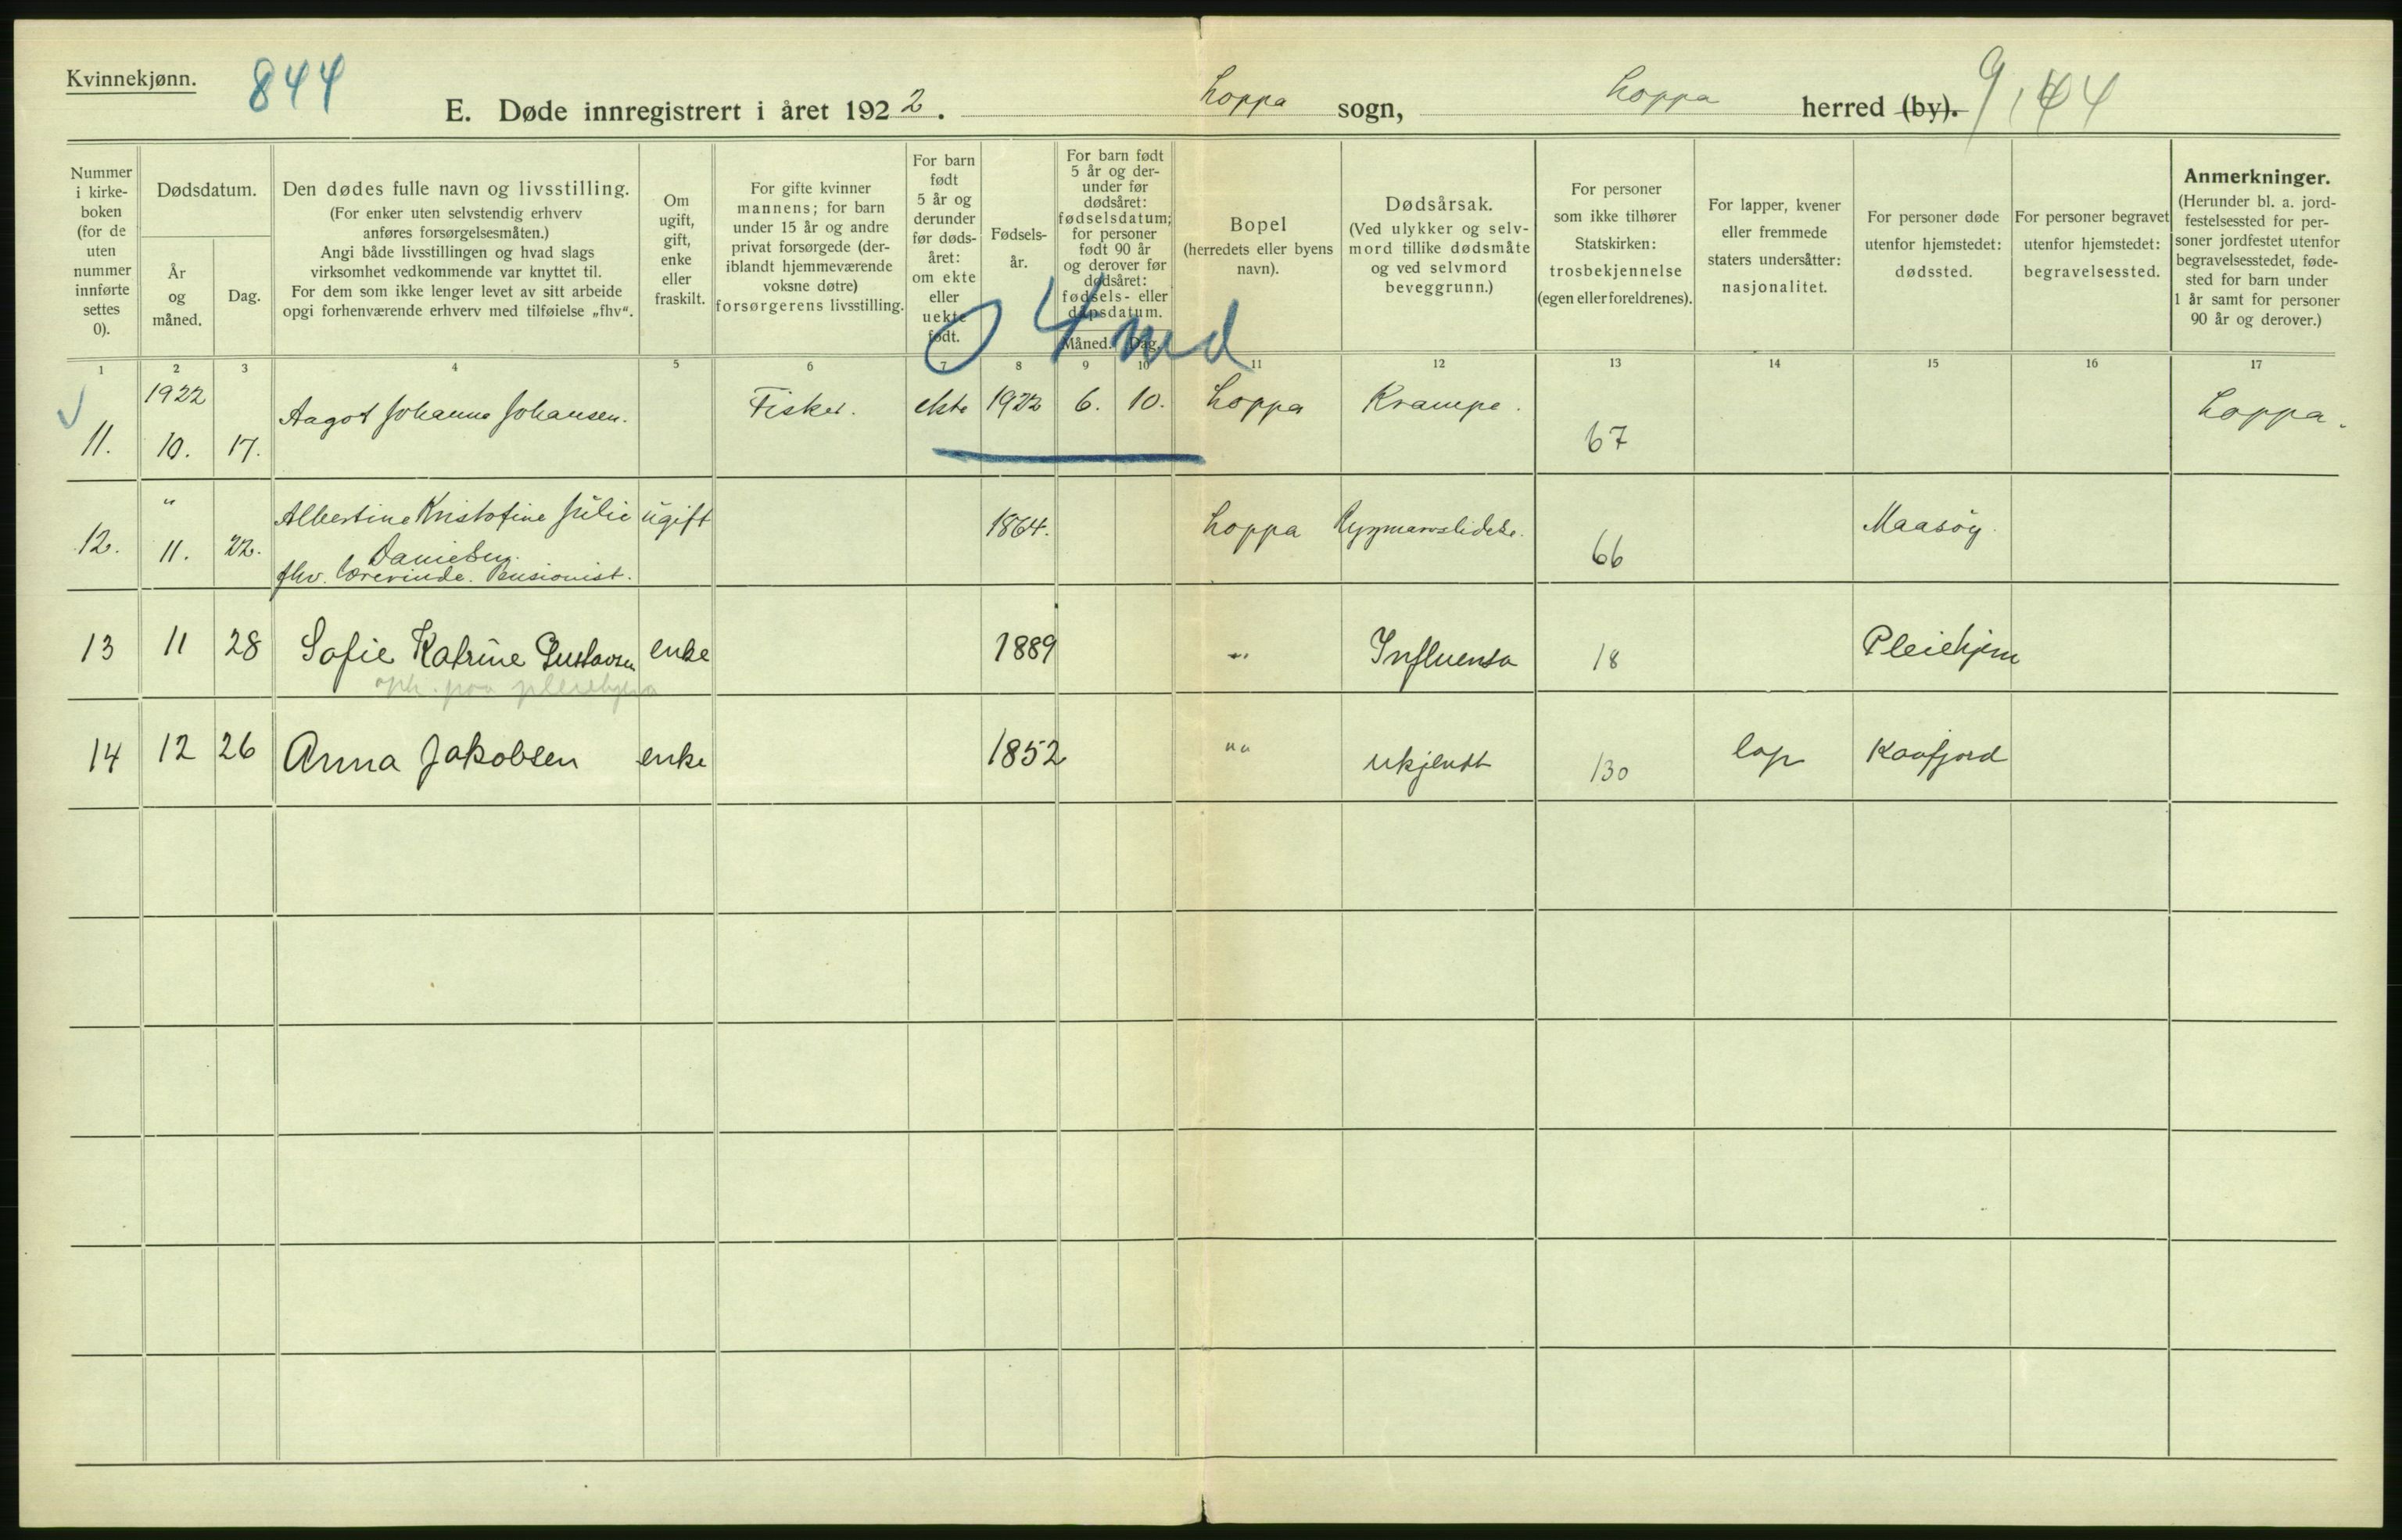 Kvinnekjønn.
844
E. Døde innregistrert i året 1922. Loppa sogn, Loppa herred (by).
Nummer i kirke-
boken
(for de
uten
nummer
innførte
settes
0).
Dødsdatum.
År
og
måned.
Dag.
Den dødes fulle navn og livsstilling.
(For enker uten selvstendig erhverv
anføres forsørgelsesmåten.)
Angi både livsstillingen og hvad slags
virksomhet vedkommende var knyttet til.
For dem som ikke lenger levet av sitt arbeide
opgi forhenværende erhverv med tilføielse „fhv“.
Om
ugift,
gift,
enke
eller
fraskilt.
For gifte kvinner
mannens; for barn
under 15 år og andre
privat forsørgede (der-
iblandt hjemmeværende
voksne døtre)
forsørgerens livsstilling.
For barn
født
5 år og
derunder
før døds-
året:
om ekte
eller
uekte
født.
Fødsels-
år.
For barn født
5 år og der-
under før
dødsåret:
fødselsdatum;
for personer
født 90 år
og derover før
dødsåret:
fødsels- eller
dåpsdatum.
Måned. Dag.
Bopel
(herredets eller byens
navn).
Dødsårsak.
(Ved ulykker og selv-
mord tillike dødsmåte
og ved selvmord
beveggrunn.)
For personer
som ikke tilhører
Statskirken:
trosbekjennelse
(egen eller foreldrenes).
For lapper, kvener
eller fremmede
staters undersåtter:
nasjonalitet.
For personer døde
utenfor hjemstedet:
dødssted.
For personer begravet
utenfor hjemstedet:
begravelsessted.
Anmerkninger.
(Herunder bl. a. jord-
festelsessted for per-
soner jordfestet utenfor
begravelsesstedet, føde-
sted for barn under
1 år samt for personer
90 år og derover.)
4 md
1 2 3 4 5 6 7 8 9 10 11 12 13 14 15 16 17
1922
11. 10. 17. Aagot Johanne Johansen. Fisker. ekte 1922 6. 10. Loppa Krampe. 67 Loppa.
12. " 11. 22. Albertine Kristofine Julie ugift 1864. Loppa Rygmarvslidelse. 66 Maasøy.
fhv. lærerinde. Pensionist.
13 11 28 Sofie Katrine Gustavsen enke 1889 " Influensa 18 Pleiehjem
oph. paa pleiehjem
14 12 26 Anna Jakobsen enke 1852 "" ukjendt 130 lap Kaafjord